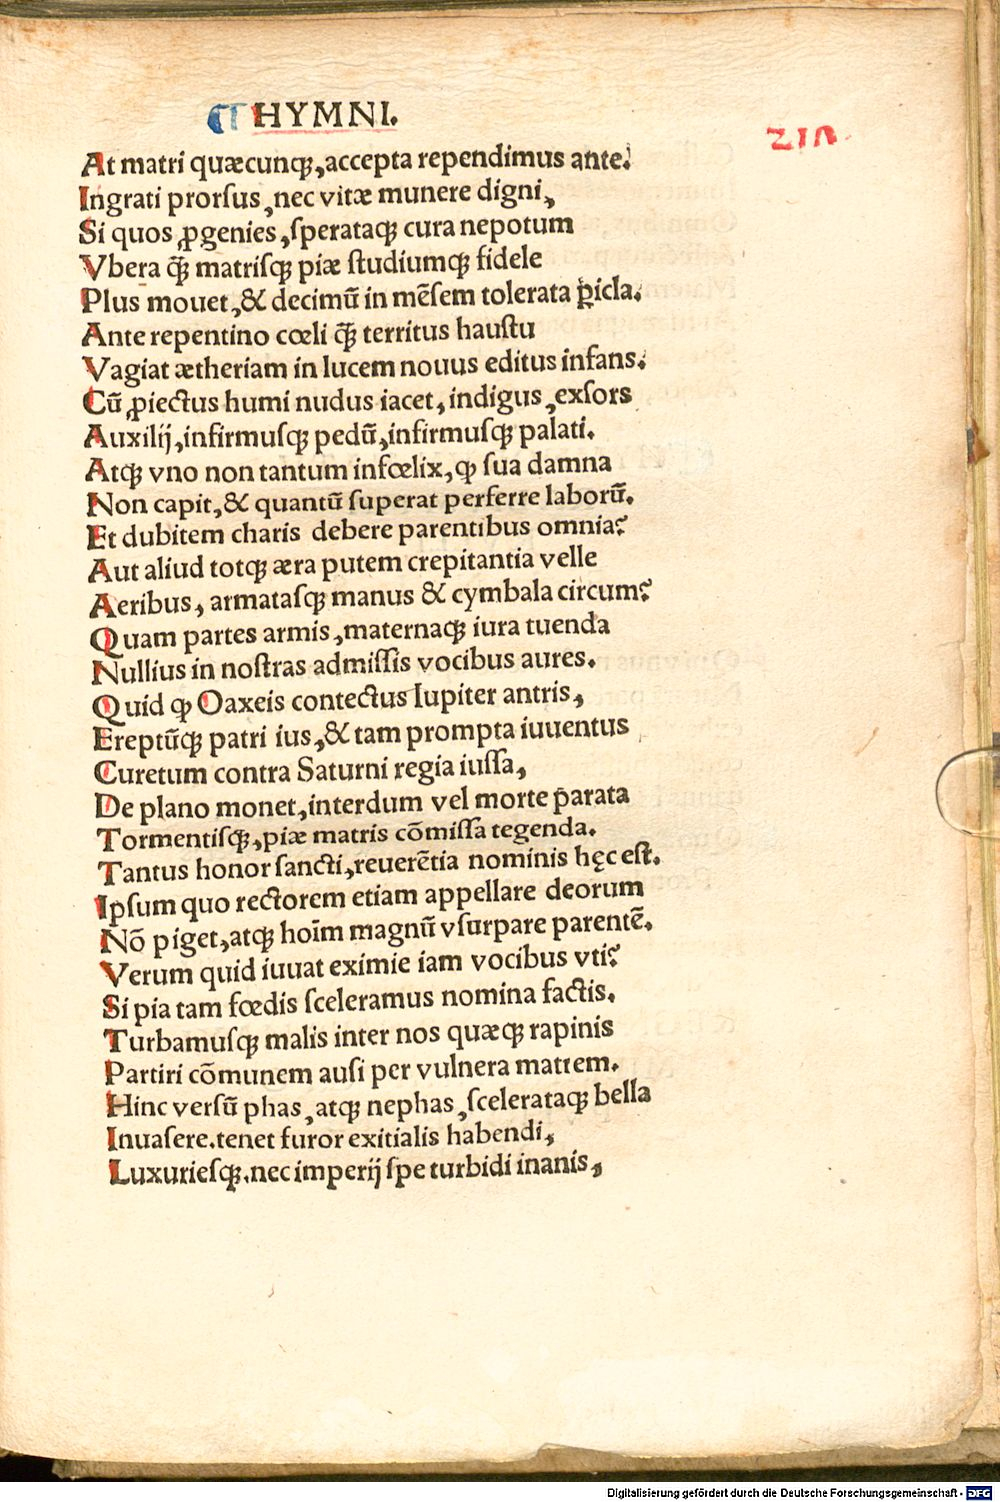 HYMNI.
At matri quæcunqꝫ, accepta rependimus ante.
Ingrati prorſus, nec vitæ munere digni,
Si quos ꝓgenies, ſperataqꝫ cura nepotum
Vbera q̃ꝫ matriſqꝫ piæ ſtudiumqꝫ fidele
Plus mouet, & decimũ in mẽſem tolerata ꝑicla.
Ante repentino cœli q̃ꝫ territus hauſtu
Vagiat ætheriam in lucem nouus editus infans.
Cũ ꝓiectus humi nudus iacet, indigus, exſors
Auxilij, infirmuſqꝫ pedũ, infirmuſqꝫ palati.
Atqꝫ vno non tantum infœlix, ꝙ ſua damna
Non capit, & quantũ ſuperat perferre laborũ.
Et dubitem charis debere parentibus omnia?
Aut aliud totqꝫ æra putem crepitantia velle
Aeribus, armataſqꝫ manus & cymbala circum?
Quam partes armis, maternaqꝫ iura tuenda
Nullius in noſtras admiſſis vocibus aures.
Quid ꝙ Oaxeis contectus Iupiter antris,
Ereptũqꝫ patri ius, & tam prompta iuuentus
Curetum contra Saturni regia iuſſa,
De plano monet, interdum vel morte p̃arata
Tormentiſqꝫ, piæ matris cõmiſſa tegenda.
Tantus honor ſancti, reuerẽtia nominis hęc eſt.
Ipſum quo rectorem etiam appellare deorum
Nõ piget, atqꝫ hoīm magnũ vſurpare parentẽ.
Verum quid iuuat eximie iam vocibus vti?
Si pia tam fœdis ſceleramus nomina factis.
Turbamuſqꝫ malis inter nos quæqꝫ rapinis
Partiri cõmunem auſi per vulnera matrem.
Hinc verſũ phas, atqꝫ nephas, ſcelerataqꝫ bella
Inuaſere. tenet furor exitialis habendi,
Luxurieſqꝫ. nec imperij ſpe turbidi inanis,
Digitalisierung gefördert durch die Deutsche Forschungsgemeinschaft - DFG